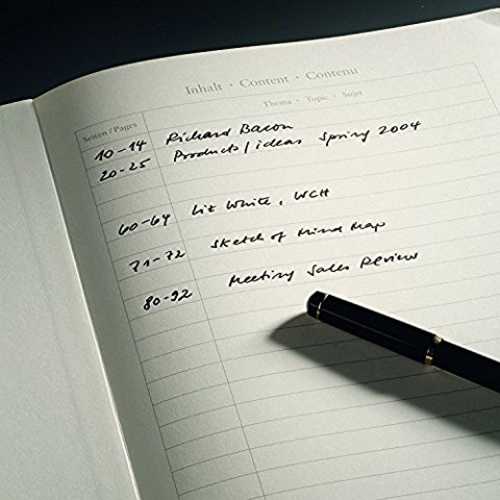 Inhalt · Content · Contenu
Thema · Topic · Sujet
Seiten / Pages
10-14 Richard Bacon
20-25 Products / ideas Spring 2004
60-64 Liz White, WCH
71-72 Sketch of Mind Map
80-92 Meeting Sales Review